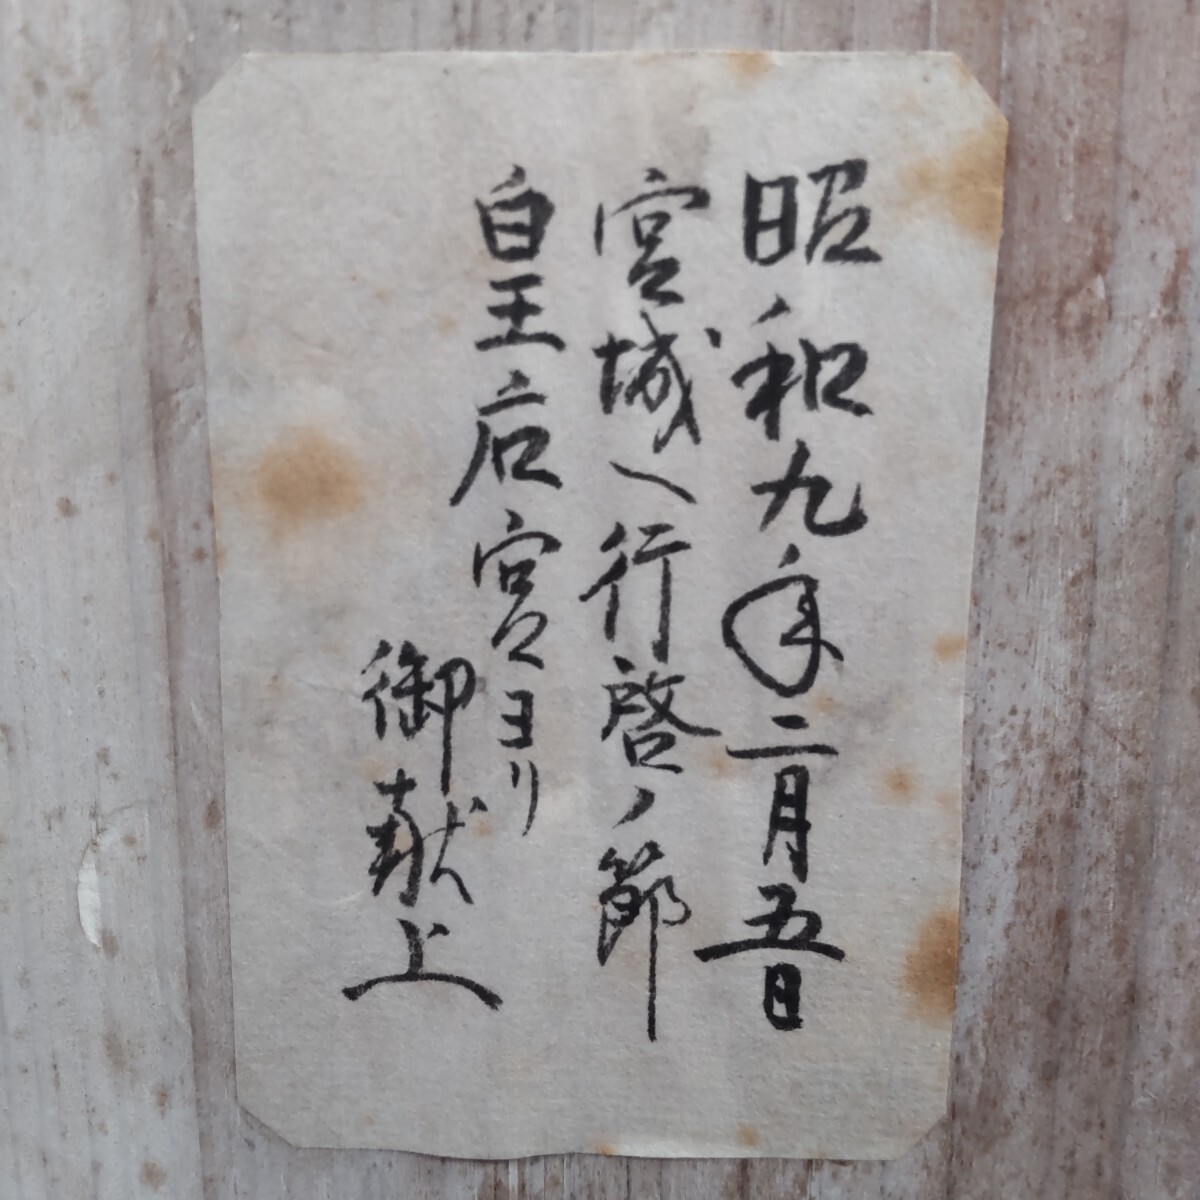 昭和九年二月五日
宮城へ行啓ノ節
皇后宮ヨリ
御献上